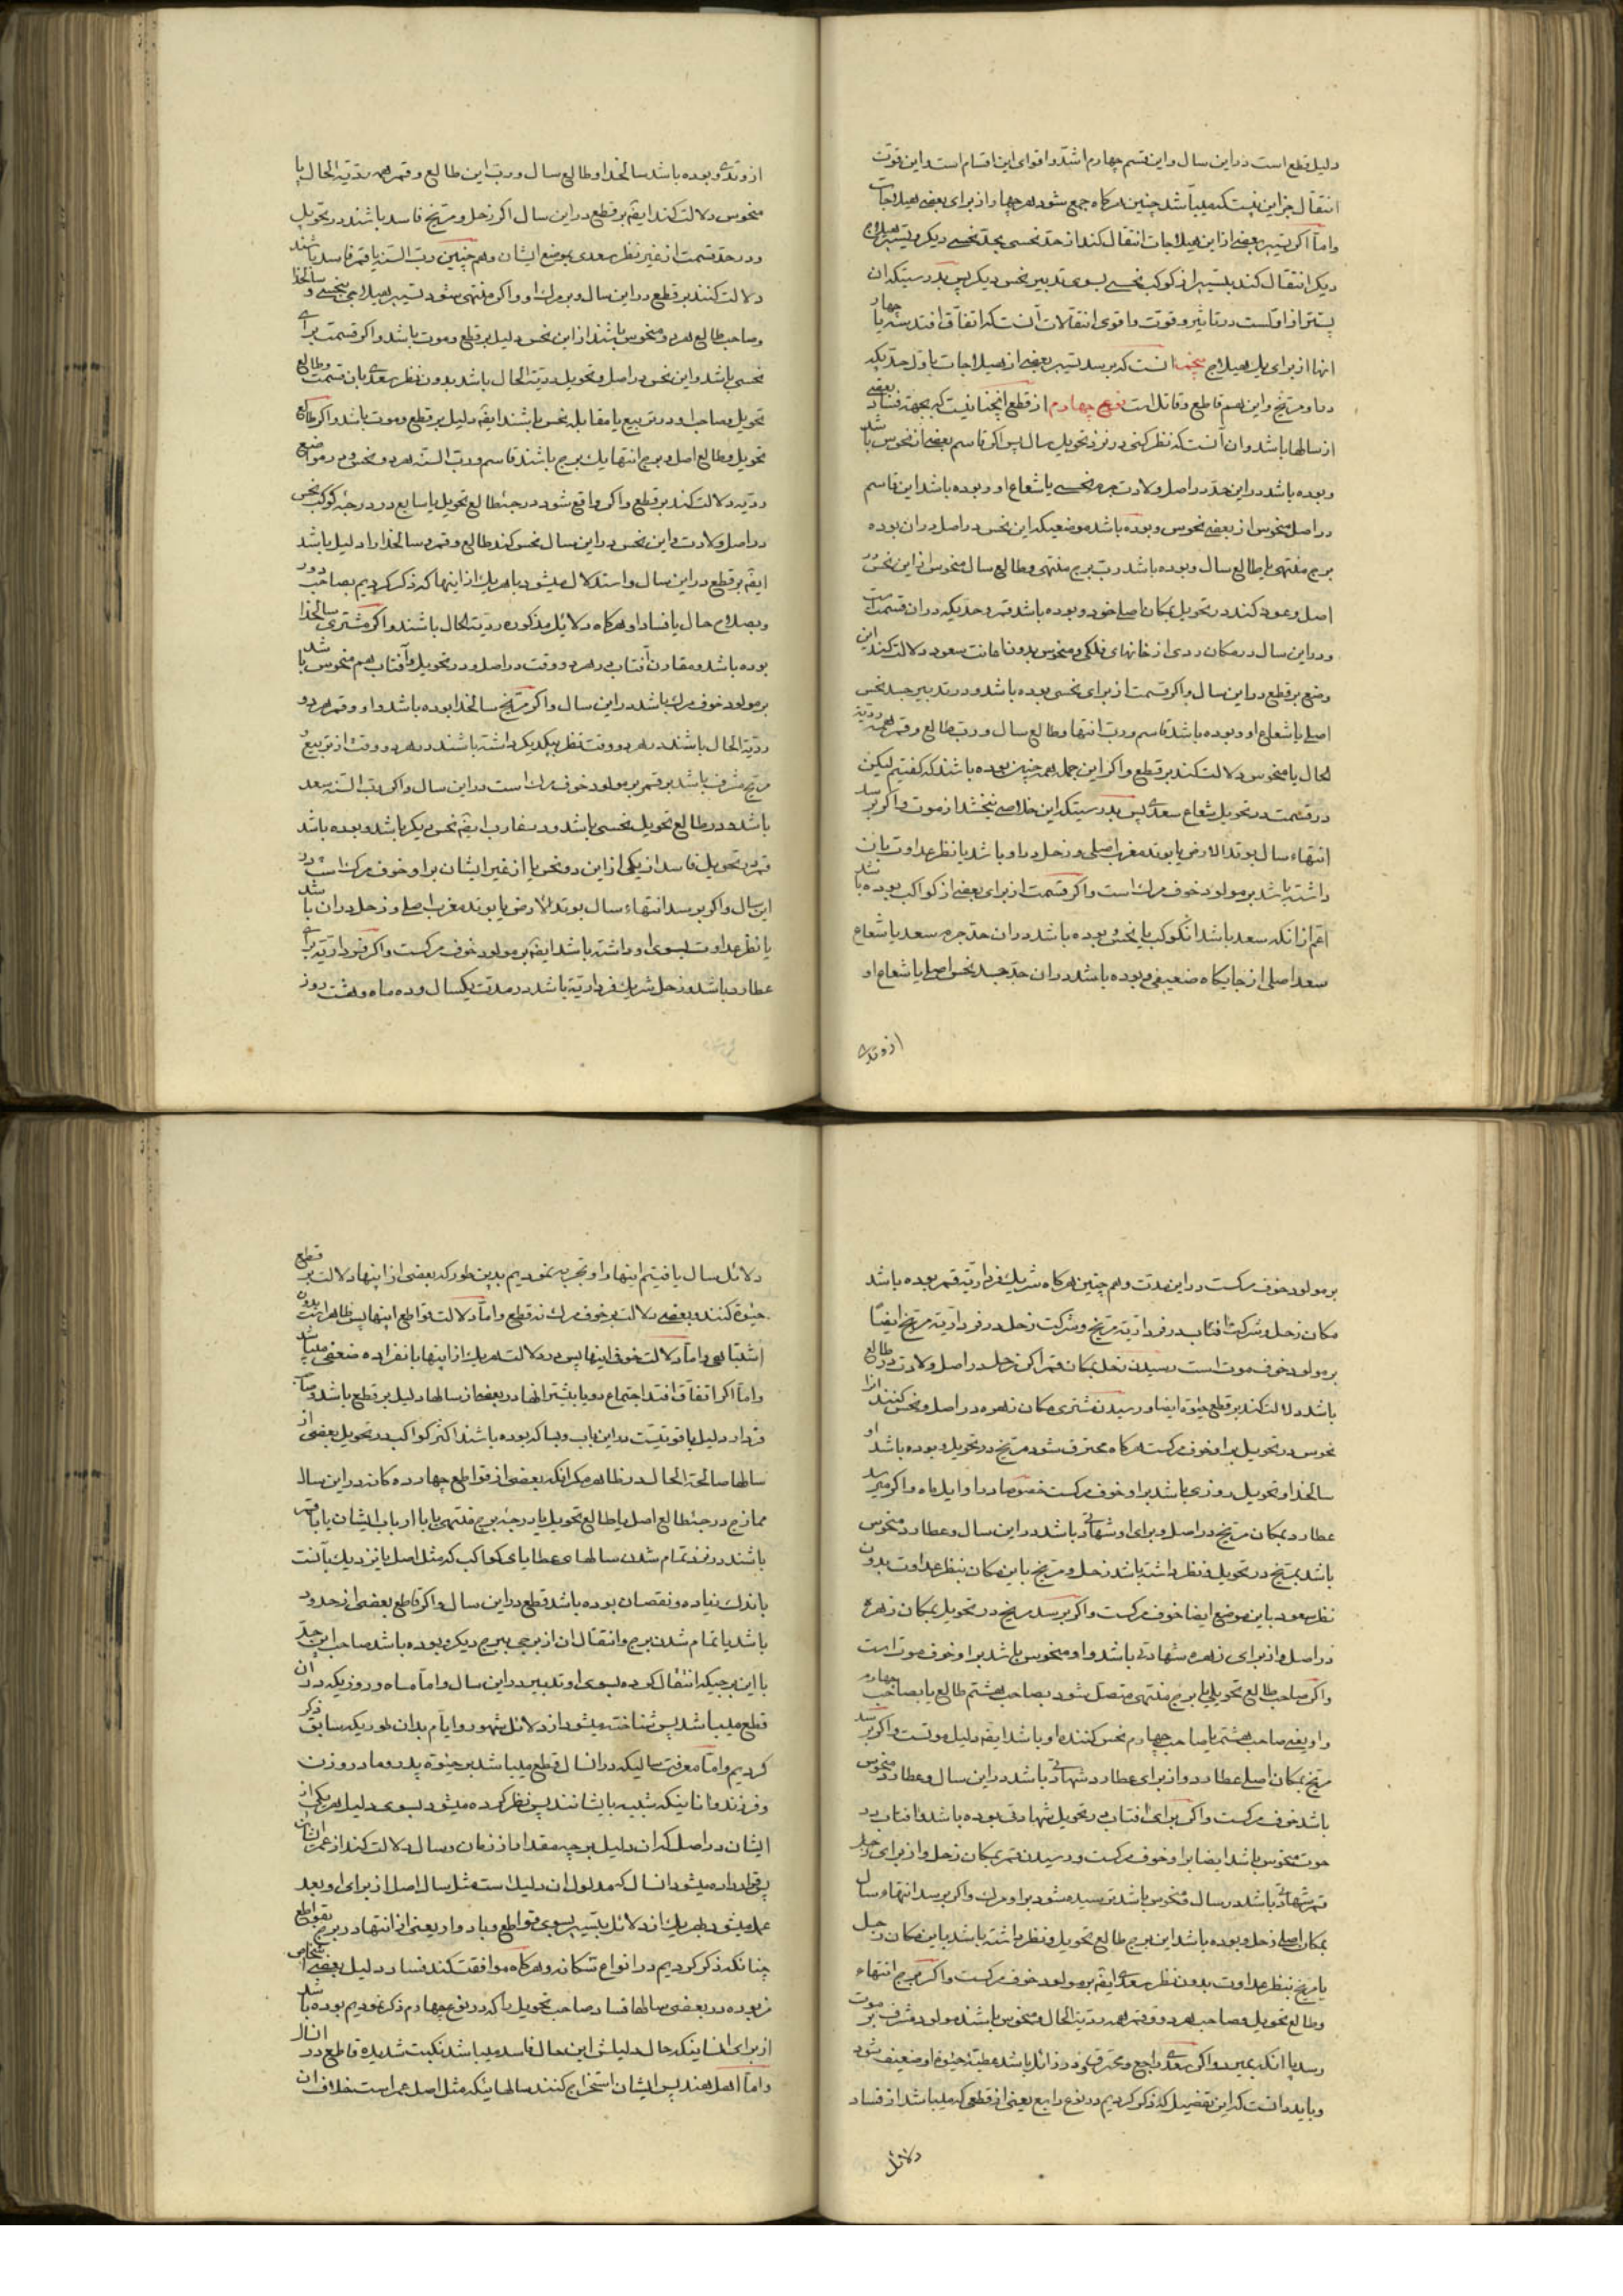 دلیل قطع است در این سال و این قسم چهارم اشد و اقوای این اقسام است و این قوت
انتقال جز این نیست که میباشد چنین هرگاه جمع شود هر چهار از برای بعضی هیلاجات
و اما اگر تسییر بعضی از این هیلاجات انتقال کند از حد نحسی بحد نحسی دیگر و تسییر هیلاج
دیگر انتقال کند بتسییر از کوکب نحسی بسوی تدبیر نحس دیگر پس بدرستیکه ان
پستتر از اولست در تاثیر و قوت و اقوی انتقالات آنست که اتفاق افتد سه یا چهار
انها از برای یک هیلاج پنجم آنست که برسد تسییر بعضی از هیلاجات باول حدیکه
و مریخ و این هم قاطع و قاتل است نوع چهارم از قطع آنچنانیست که بجهة فساد بعضی
از سالها باشد و ان آنست که نظر کنی در نزد تحویل سال پس اگر قاسم بعضی از نحوس باشد
و بوده باشد در این حد در اصل ولادت جرم نحسی یا شعاع او و بوده باشد این قاسم
در اصل منحوس از بعضی نحوس و بوده باشد موضعیکه این نحس در اصل در ان بوده
برج منتهی یا طالع سال و بوده باشد رب برج منتهی و طالع سال منحوس از این نحس در
اصل و عود کند در تحویل بمکان اصلی خود و بوده باشد قمر در حدیکه در ان قسمت است
و در این سال در مکان ردی از خانهای فلکی و منحوس بدون اعانت سعود دلالت کند این
وضع بر قطع در این سال و اگر قسمت از برای نحسی بوده باشد و در تدبیر جسد نحس
اصلی یا شعاع او و بوده باشد قاسم و رب انتها و طالع سال و رب طالع و قمر همه ردیة
الحال یا منحوس دلالت کند بر قطع و اگر این جمله همه چنین بوده باشند که گفتیم لیکن
در قسمت در تحویل شعاع سعدی پس بدرستیکه این خلاصی نبخشد از موت و اگر برسد
انتهاء سال بوتد الارض یا بوتد مغرب اصلی و زحل در او باشد یا نظر عداوت بان
داشته باشد بر مولود خوف مرک است و اگر قسمت از برای بعضی از کواکب بوده باشد
اعم از انکه سعد باشد انکوکب یا نحس و بوده باشد در ان حد جرم سعد یا شعاع
سعد اصلی از جایگاه ضعیفی و بوده باشد در ان حد جسد نحس اصلی یا شعاع او
از وتدی
از وتدی و بوده باشد سالخدا و طالع سال و رب این طالع و قمر همه ردیة الحال یا
منحوس دلالت کند ایضا بر قطع در این سال اگر زحل و مریخ فاسد باشند در تحویل
و در حد قسمت از غیر نظر سعدی بموضع ایشان و هم چنین رب السنه یا قمر فاسد باشند
دلالت کنند بر قطع در این سال و بر مرک او و اگر منتهی شود تسییر هیلاجی بنحسی و سالخدا
و صاحب طالع هر دو منحوس باشند از این نحس دلیل بر قطع و موت باشد و اگر قسمت برای
نحسی باشد و این نحس در اصل و تحویل ردیة الحال باشد بدون نظر سعدی بان قسمت و طالع
تحویل و صاحب او در تربیع یا مقابله نحس باشند ایضا دلیل بر قطع و موت باشد و اگر طالع
تحویل و طالع اصل و برج انتها یک برج باشند و قاسم و رب السنه هر دو نحس و در مواضع
ردیه دلالت کند بر قطع و اگر واقع شود درجه طالع تحویل یا سابع در درجه کوکب نحس
در اصل ولادت و این نحس در این سال نحس کند طالع و قمر و سالخدا را دلیل باشد
ایضا بر قطع در این سال و استدلال میشود باهر یک از اینها که ذکر کردیم بصاحب دور
و بصلاح حال یا فساد او هرگاه دلائل مذکوره ردیة الحال باشند و اگر مشتری سالخدا
بوده باشد و مقارن آفتاب در هر دو وقت در اصل و در تحویل و آفتاب هم منحوس باشد
بر مولود خوف مرک باشد در این سال و اگر مریخ سالخدا بوده باشد و او و قمر هر دو
ردیة الحال باشند در هر دو وقت نظر بیکدیگر داشته باشند در هر دو وقت از تربیع و
مریخ مشرف باشد بر قمر بر مولود خوف مرک است در این سال و اگر رب السنه سعد
باشد و در طالع تحویل نحسی باشد و در مغارب ایضا نحس دیگر باشد و بوده باشد
قمر در تحویل فاسد از یکی از این دو نحس یا از غیر ایشان بر او خوف مرک است در
این سال و اگر برسد انتهاء سال بوتد الارض یا بوتد مغرب اصلی و زحل در ان باشد
یا نظر عداوت بسوی او داشته باشد ایضا بر مولود خوف مرکست و اگر فرداریه برای
عطارد باشد و زحل شریک فرداریة باشد در مدت یکسال و ده ماه و هشت روز
بر مولود خوف مرکست در این مدت و هم چنین هرگاه شریک فرداریه قمر بوده باشد
مکان زحل و شرکت افتاب در فرداریة مریخ و شرکت زحل در فرداریة مریخ ایضا
بر مولود خوف موت است و رسیدن زحل بمکان قمر اگر زحل در اصل ولادت در طالع
باشد دلالت کند بر قطع حیوة ایضا و رسیدن مشتری بمکان زهره در اصل و نحس کنند او را
نحوس در تحویل بر او خوف مرکست هرگاه محترق شود مریخ در تحویل و بوده باشد او
سالخدا و تحویل روزی باشد بر او خوف مرکست خصوصا در اوایل ماه و اگر برسد
عطارد بمکان مریخ در اصل و برای او شهادتی باشد در این سال و عطارد منحوس
باشد بمریخ در تحویل و نظر داشته باشد زحل و مریخ باین مکان بنظر عداوت بدون
نظر سعود باین موضع ایضا خوف مرکست و اگر برسد مریخ در تحویل بمکان زهره
در اصل و از برای زهره شهادتی باشد و او منحوس باشد بر او خوف موت است
و اگر صاحب طالع تحویلی یا برج منتهی متصل شود بصاحب هشتم طالع یا بصاحب چهارم
و او یعنی صاحب هشتم یا صاحب چهارم نحس کننده او باشد ایضا دلیل موتست و اگر برسد
مریخ بمکان اصلی عطارد و از برای عطارد شهادتی باشد در این سال و عطارد منحوس
باشد خوف مرکست و اگر برای افتاب در تحویل شهادتی بوده باشد و افتاب در
حوت منحوس باشد ایضا بر او خوف مرکست و در رسیدن قمر بمکان زحل و از برای زحل
قمر شهادتی باشد در سال و منحوس باشد ترسیده شود بر او مرک و اگر برسد انتهاء سال
بمکان اصلی زحل و بوده باشد این برج طالع تحویل و نظر داشته باشد باین مکان زحل
یا مریخ بنظر عداوت بدون نظر سعدی ایضا بر مولود خوف مرکست و اگر برج انتهاء
و طالع تحویل و صاحب هر دو و قمر همه ردیة الحال و منحوس باشند مولود مشرف بر موت
رسد یا انکه بمیرد و اگر سعدی راجع و محترق و در زائل باشد عطیة حیوة او ضعیف شود
و باید دانست که این تفصیل که ذکر کردیم در نوع رابع یعنی از قطعی که میباشد از فساد
دلائل
دلائل سال یافتیم اینها را و تجربه نمودیم بدین طور که بعضی از اینها دلالت بر قطع
حیوة کنند و بعضی دلالت بر خوف مرک نه قطع و اما دلالت قواطع اینها پس ظاهر است بدون
اشتباهی و اما دلالت خوف اینها پس در دلالت هر یک از اینها بانفراده ضعفی میباشد
و اما اگر اتفاق افتد اجتماع دو یا بیشتر انها در بعضی از سالها دلیل بر قطع باشد
دلیل باقوتیست در این باب و بسا که بوده باشند اکثر کواکب در تحویل بعضی از
سالها صالحة الحال در ظاهر مگر انکه بعضی از قواطع چهارده گانه در این سال
ممازج درجه طالع اصل یا طالع تحویل یا درجه برج منتهی یا با ارباب ایشان یا با قمر
باشند در نزد تمام شدن سالهای عطایای کواکب که مثل اصل یا نزدیک بآنست
باندک زیاده و نقصان بوده باشد قطع در این سال و اگر قاطع بعضی از حدود
باشد یا تمام شدن برج و انتقال ان از برجی ببرج دیگر و بوده باشد صاحب این حد
یا این برجیکه انتقال کرده بسوی او تدبیر در این سال و اما ماه و روزیکه در ان
قطع میباشد پس شناخته میشود از دلائل شهور و ایام بدان طوریکه سابق ذکر
کردیم و اما معرفت سالیکه در انسال قطع میباشد بر حیوة پدر و مادر و زن
و فرزند و انانیکه شبیه بایشانند پس نظر کرده میشود بسوی دلیل هر یک از
ایشان در اصل که ان دلیل بر چه مقدار از زمان و سال دلالت کند از عمر ایشان
پس قرار داده میشود انسال که مدلول ان دلیل است مثل سال اصل از برای او و بعد
عمل میشود بهر یک از دلائل بتسییر بسوی قواطع و بادوار یعنی از انتها در برج بقواطع
چنانکه ذکر کردیم در انواع ثلثه و هرگاه موافقت کند فساد دلیل بعضی اشخاص
مزبوره در بعضی سالها فساد صاحب تحویل را که در نوع چهارم ذکر نمودیم بوده باشد
از برای انسانیکه حال دلیلش این حال فاسد میباشد نکبت شدیده قاطع در انسال
و اما اهل هند پس ایشان استخراج کنند سالهائیکه مثل اصل عمر است بخلاف ان